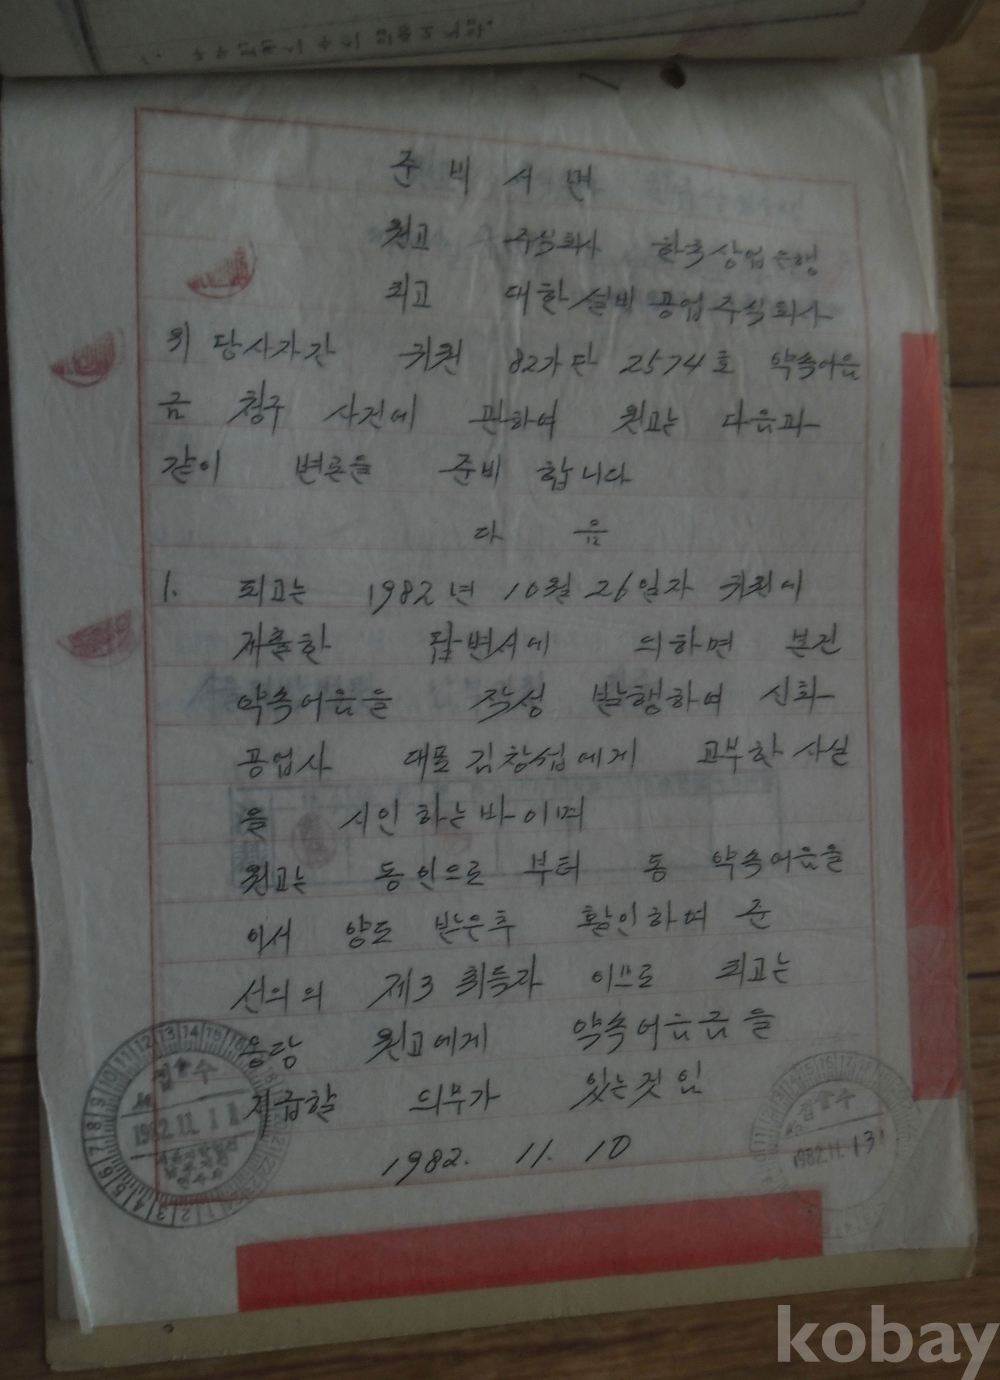 준 비 서 면
원고 주식회사 한국상업은행
피고 대한설비공업주식회사
위 당사자간 귀원 82가단 2574호 약속어음
금 청구 사건에 관하여 원고는 다음과
같이 변론을 준비 합니다
다 음
1. 피고는 1982년 10월 26일자 귀원에
제출한 답변서에 의하면 본건
약속어음을 작성 발행하여 신화
공업사 대표 김창섭에게 교부한 사실
을 시인 하는바이며
원고는 동인으로 부터 동 약속어음을
이서 양도 받은후 할인하여 준
선의의 제3 취득자 이므로 피고는
응당 원고에게 약속어음금을
지급할 의무가 있는것임
1982. 11. 10
접수
1982.11.1
접수
1982.11.13
kobay